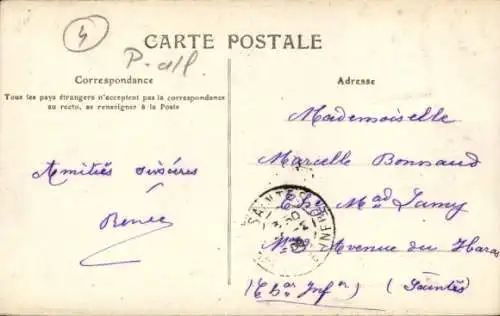 4
P-all
CARTE POSTALE
Correspondance
Tous les pays étrangers n'acceptent pas la correspondance
au recto, se renseigner à la Poste
Adresse
Amitiés sincères
Renée
Mademoiselle
Marcelle Bonnaud
Chez Mad Lamy
Avenue du Haras
(Saintes)
(Chre Infre)